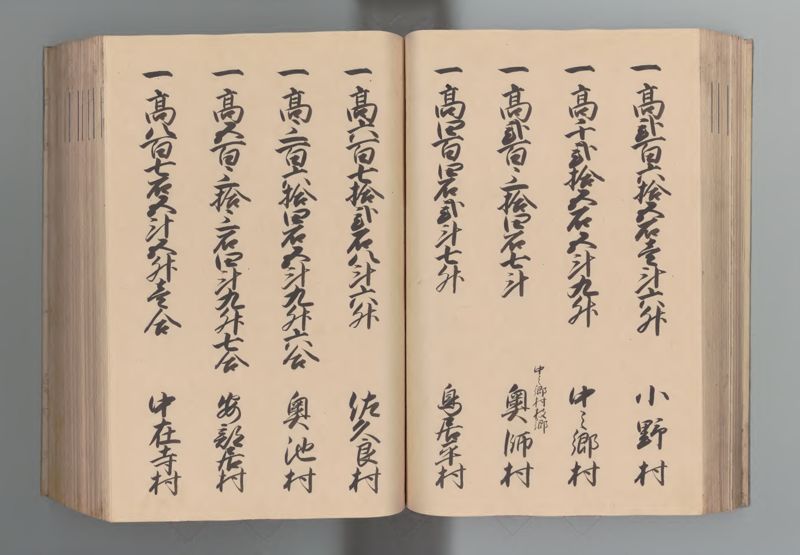 一高弐百六拾五石壱斗六升 小野村
一高千弐拾五石五斗九升 中之郷村
中之郷村枝郷
一高弐百三拾四石七斗 奥師村
一高四百四石弐斗七升 鳥居平村
一高六百七拾弐石八斗六升 佐久良村
一高三百六拾四石五斗九升六合 奥池村
一高五百三拾三石四斗九升七合 安部居村
一高八百七石五斗五升壱合 中在寺村